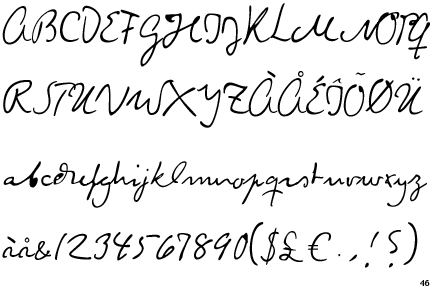 ABCDEFGHIJKLMNOPQ
RSTUVWXYZÀÅÉÎÕØÜ
abcdefghijklmnopqrstuvwxyz
àå&1234567890($£€.,!?)
46